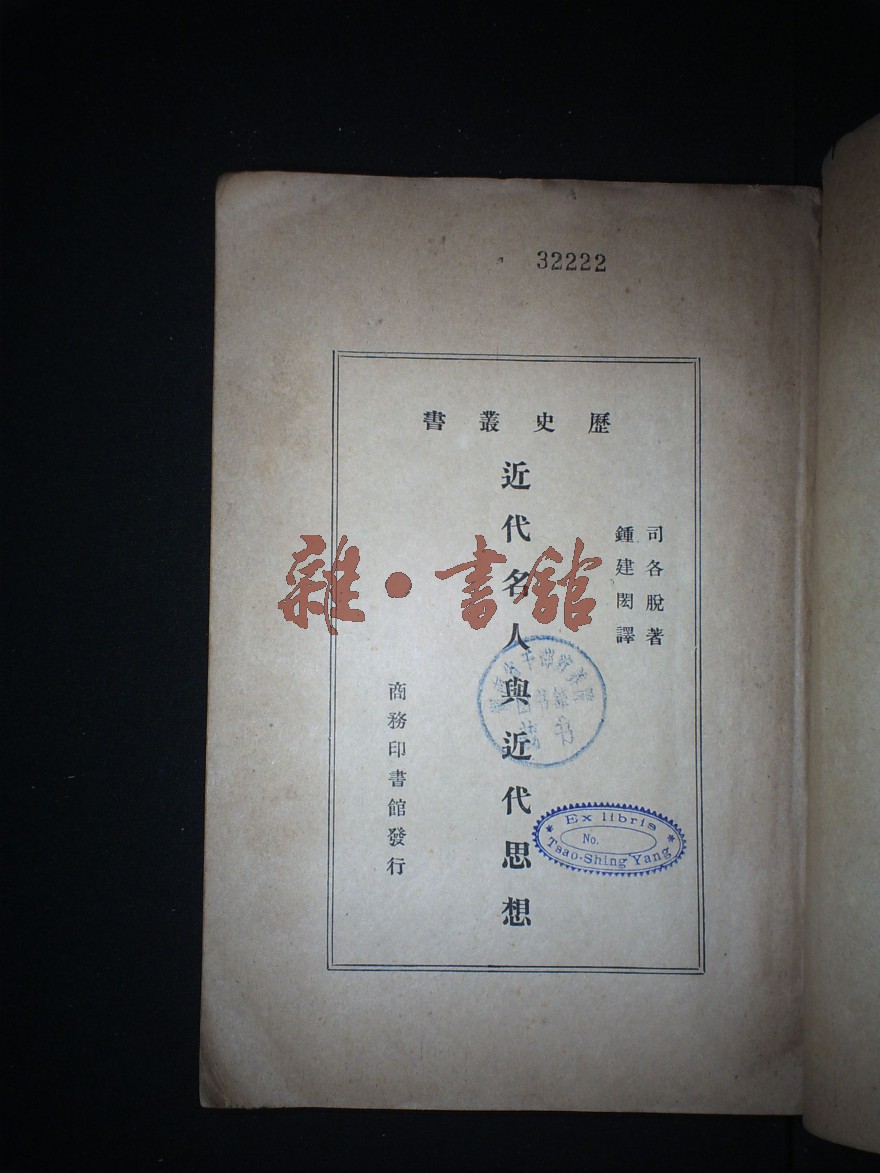 32222
歷史叢書
司各脫著
鍾建閎譯
近代名人與近代思想
商務印書館發行
雜·書館
Ex libris
No.
Tsao-Shing Yang